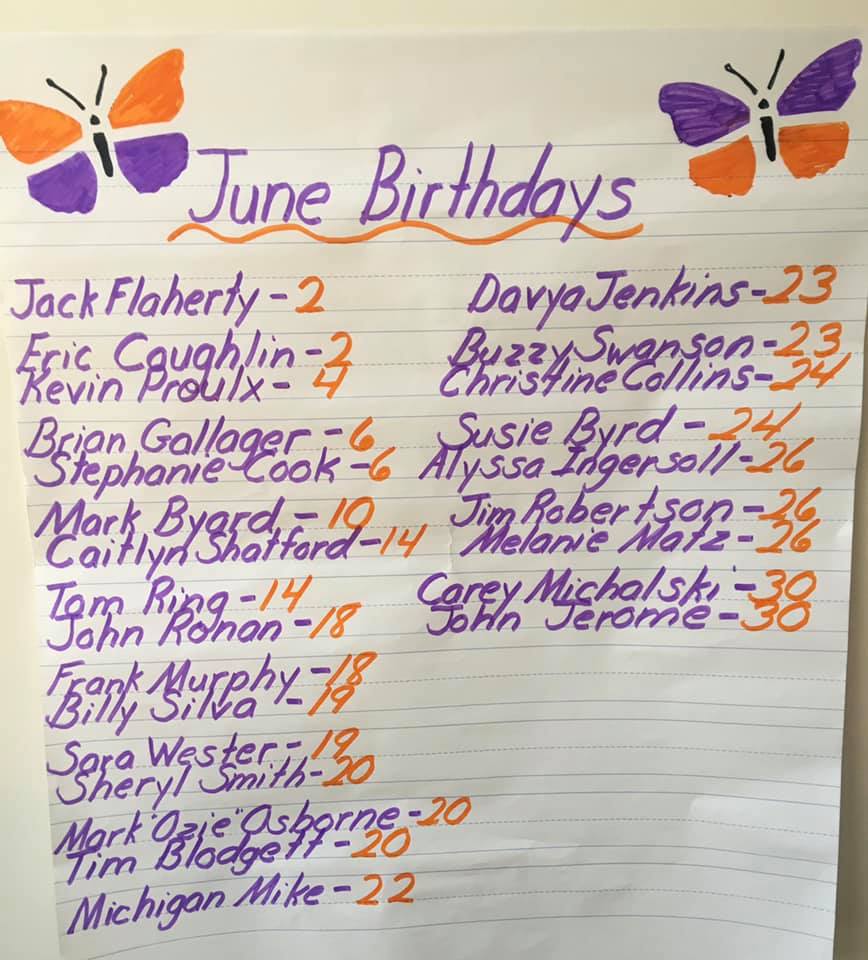 June Birthdays
Jack Flaherty - 2
Eric Coughlin - 2
Kevin Proulx - 4
Brian Gallager - 6
Stephanie Cook - 6
Mark Byard - 10
Caitlyn Shatford - 14
Tom Ring - 14
John Ronan - 18
Frank Murphy - 18
Billy Silva - 19
Sara Wester - 19
Sheryl Smith - 20
Mark "Ozie" Osborne - 20
Tim Blodgett - 20
Michigan Mike - 22
Davya Jenkins - 23
Buzzy Swanson - 23
Christine Collins - 24
Susie Byrd - 24
Alyssa Ingersoll - 26
Jim Robertson - 26
Melanie Matz - 26
Carey Michalski - 30
John Jerome - 30